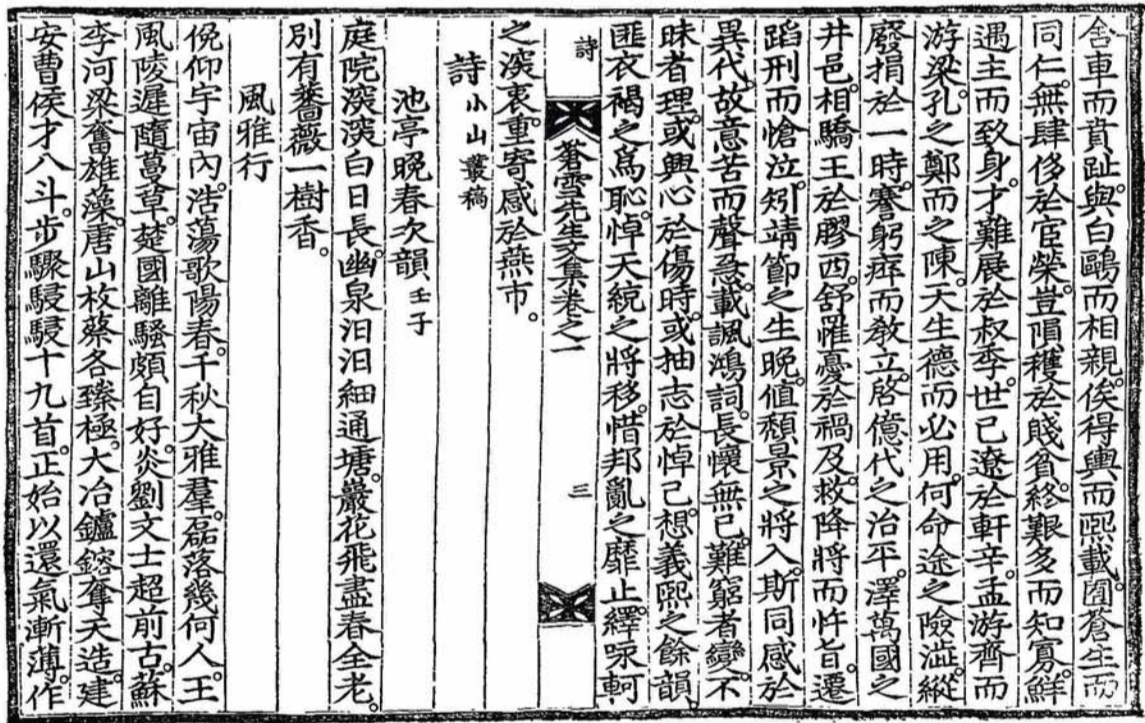 舍車而賁趾。與白鷗而相親。俟得輿而熙載。囿蒼生而
同仁。無肆侈於宦榮。豈隕穫於賤貧。終艱多而知寡。鮮
遇主而致身。才難展於叔季。世已遼於軒辛。孟游齊而
游梁。孔之鄭而之陳。天生德而必用。何命途之險澁。縱
廢捐於一時。謇躬瘁而敎立。啓億代之治平。澤萬國之
井邑。相驕王於膠西。舒罹憂於禍及。救降將而忤旨。遷
蹈刑而愴泣。矧靖節之生晩。値頹景之將入。斯同感於
異代。故意苦而聲急。載諷鴻詞。長懷無已。難窮者變。不
昧者理。或興心於傷時。或抽志於悼己。想義熙之餘韻。
匪衣褐之爲恥。悼天統之將移。惜邦亂之靡止。繹咏軻
詩
蒼雪先生文集卷之一
三
之深衷。重寄感於燕市。
詩 小山叢稿
池亭晩春次韻 壬子
庭院深深白日長。幽泉汨汨細通塘。巖花飛盡春全老。
別有薔薇一樹香。
風雅行
俛仰宇宙內。浩蕩歌陽春。千秋大雅羣。磊落幾何人。王
風陵遲隨蔓草。楚國離騷頗自好。炎劉文士超前古。蘇
李河梁奮雄藻。唐山枚蔡各臻極。大冶鑪鎔奪天造。建
安曹侯才八斗。步驟駸駸十九首。正始以還氣漸薄。作